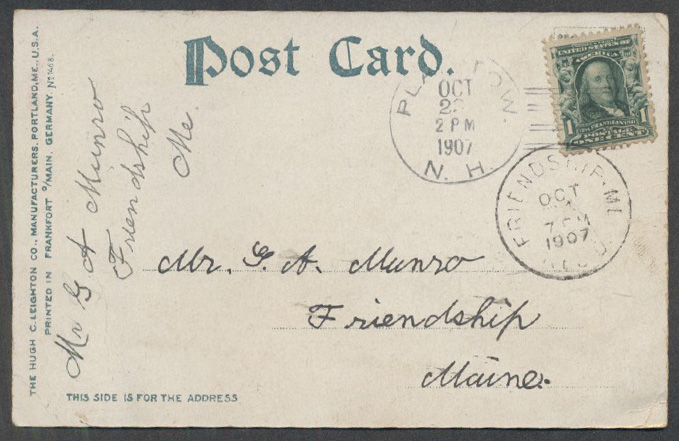 Post Card.
THE HUGH C. LEIGHTON CO., MANUFACTURERS, PORTLAND, ME., U.S.A.
PRINTED IN FRANKFORT o/MAIN, GERMANY. No 1468.
Mr G A Munro
Friendship
Me.
OCT
2 PM
1907
N. H.
UNITED STATES OF AMERICA
1 1
FRANKLIN
POSTAGE
ONE CENT
FRIENDSHIP. ME
OCT
7 PM
1907
REC'D.
Mr. G. A. Munro
Friendship
Maine.
THIS SIDE IS FOR THE ADDRESS